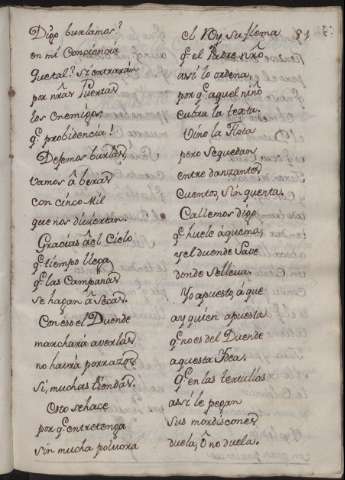 Digo burlamos?
en mi Conciencia
que tal? Si entraran
por nr̃as Puertas
los enemigos,
q.e probidencia!
Dejemos burlas,
vamos â beras
con cinco Mil
que nos diviertan.
Gracias â el Cielo
q.e tiempo llega
q.e las Campanas
se hagan â secas.
Con eso el Duende
marchará a verlas
no havrá porrazos
si, muchas tiendas.
Esto se hace
por q.e entretenga
sin mucha polvora
el Rey su flema
81
q.e el Padre nr̃o
assi lo ordena,
por q.e aquel niño
cubra la teata.
Vino la Flota
pero se quedaon
entre danzantes
cuentos, sin quenta.
Callemos digo
q.e huele â quemo,
y el duende save
donde se lleva.
Yo apuesto, â que
ay quien apuesta
q.e no es del Duende
aquesta Idea.
q.e en las tertulias
assi le pegan
sus mordiscones
duela, O no duela.